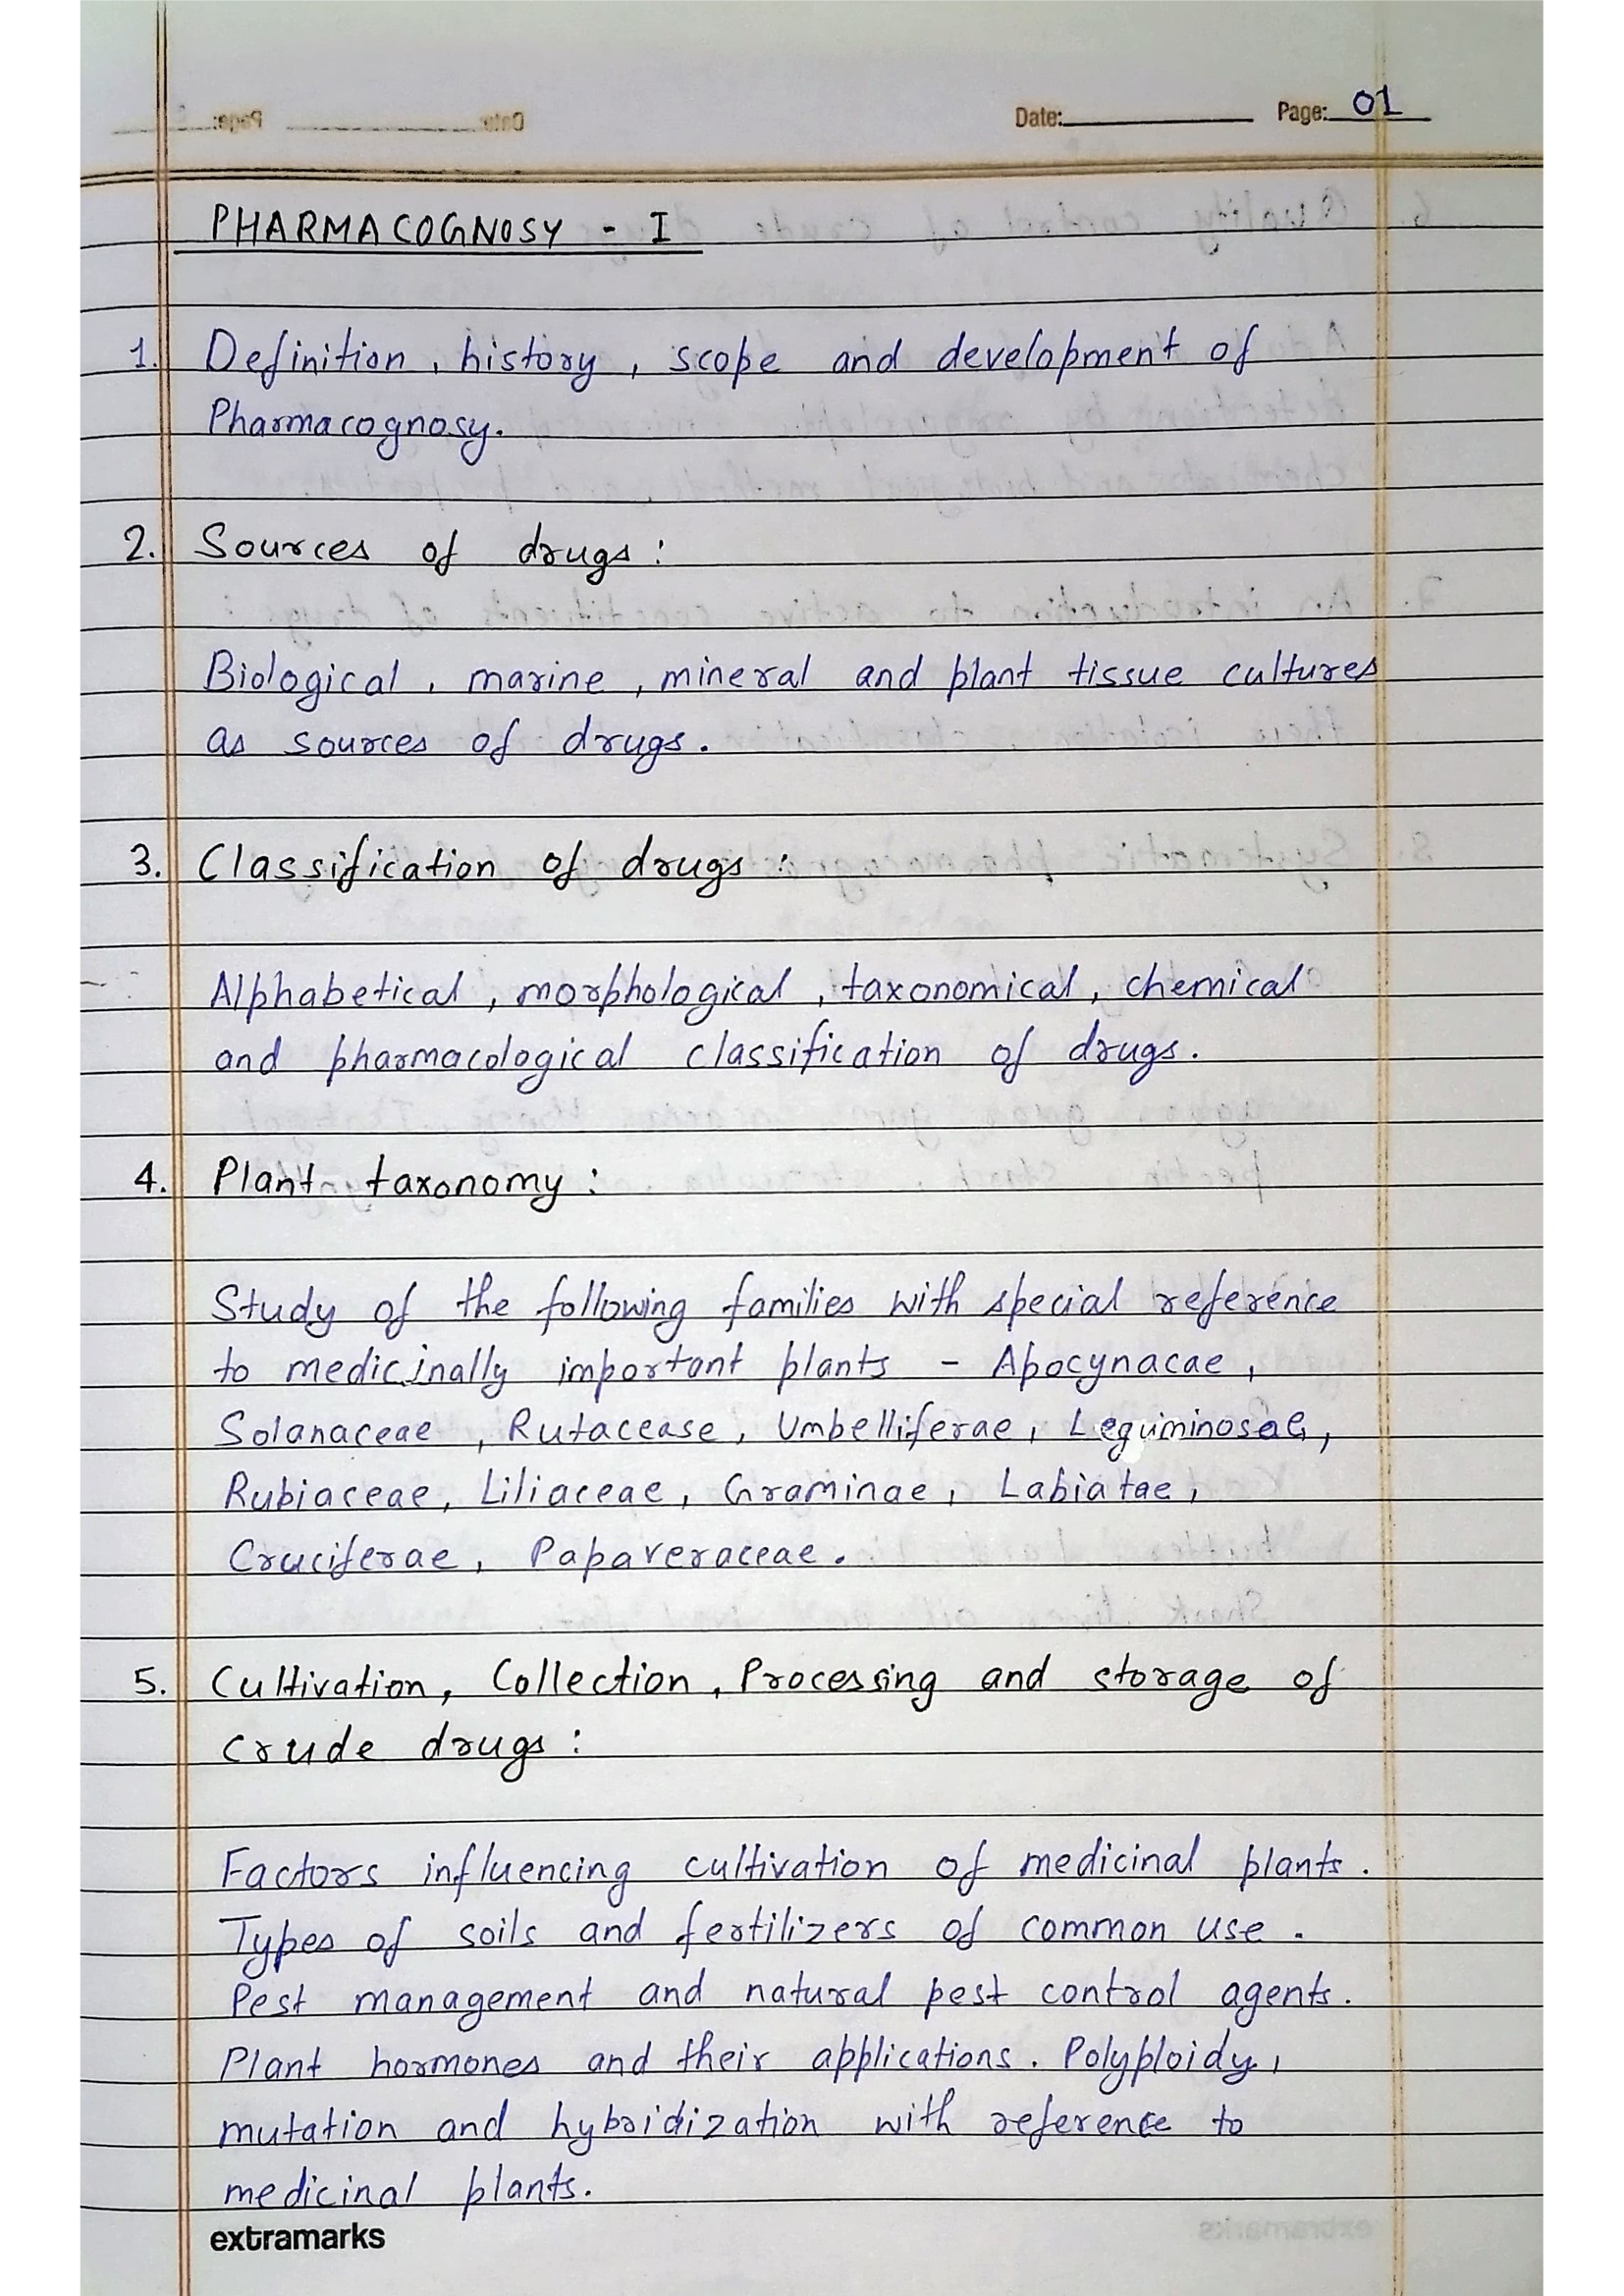 Date: Page: 01
PHARMACOGNOSY - I
1. Definition, history, scope and development of
Pharmacognosy.
2. Sources of drugs:
Biological, marine, mineral and plant tissue cultures
as sources of drugs.
3. Classification of drugs:
Alphabetical, morphological, taxonomical, chemical
and pharmacological classification of drugs.
4. Plant taxonomy:
Study of the following families with special reference
to medicinally important plants - Apocynacae,
Solanaceae, Rutacease, Umbelliferae, Leguminosae,
Rubiaceae, Liliaceae, Graminae, Labiatae,
Cruciferae, Papaveraceae.
5. Cultivation, Collection, Processing and storage of
crude drugs:
Factors influencing cultivation of medicinal plants.
Types of soils and fertilizers of common use.
Pest management and natural pest control agents.
Plant hormones and their applications. Polyploidy,
mutation and hybridization with reference to
medicinal plants.
extramarks